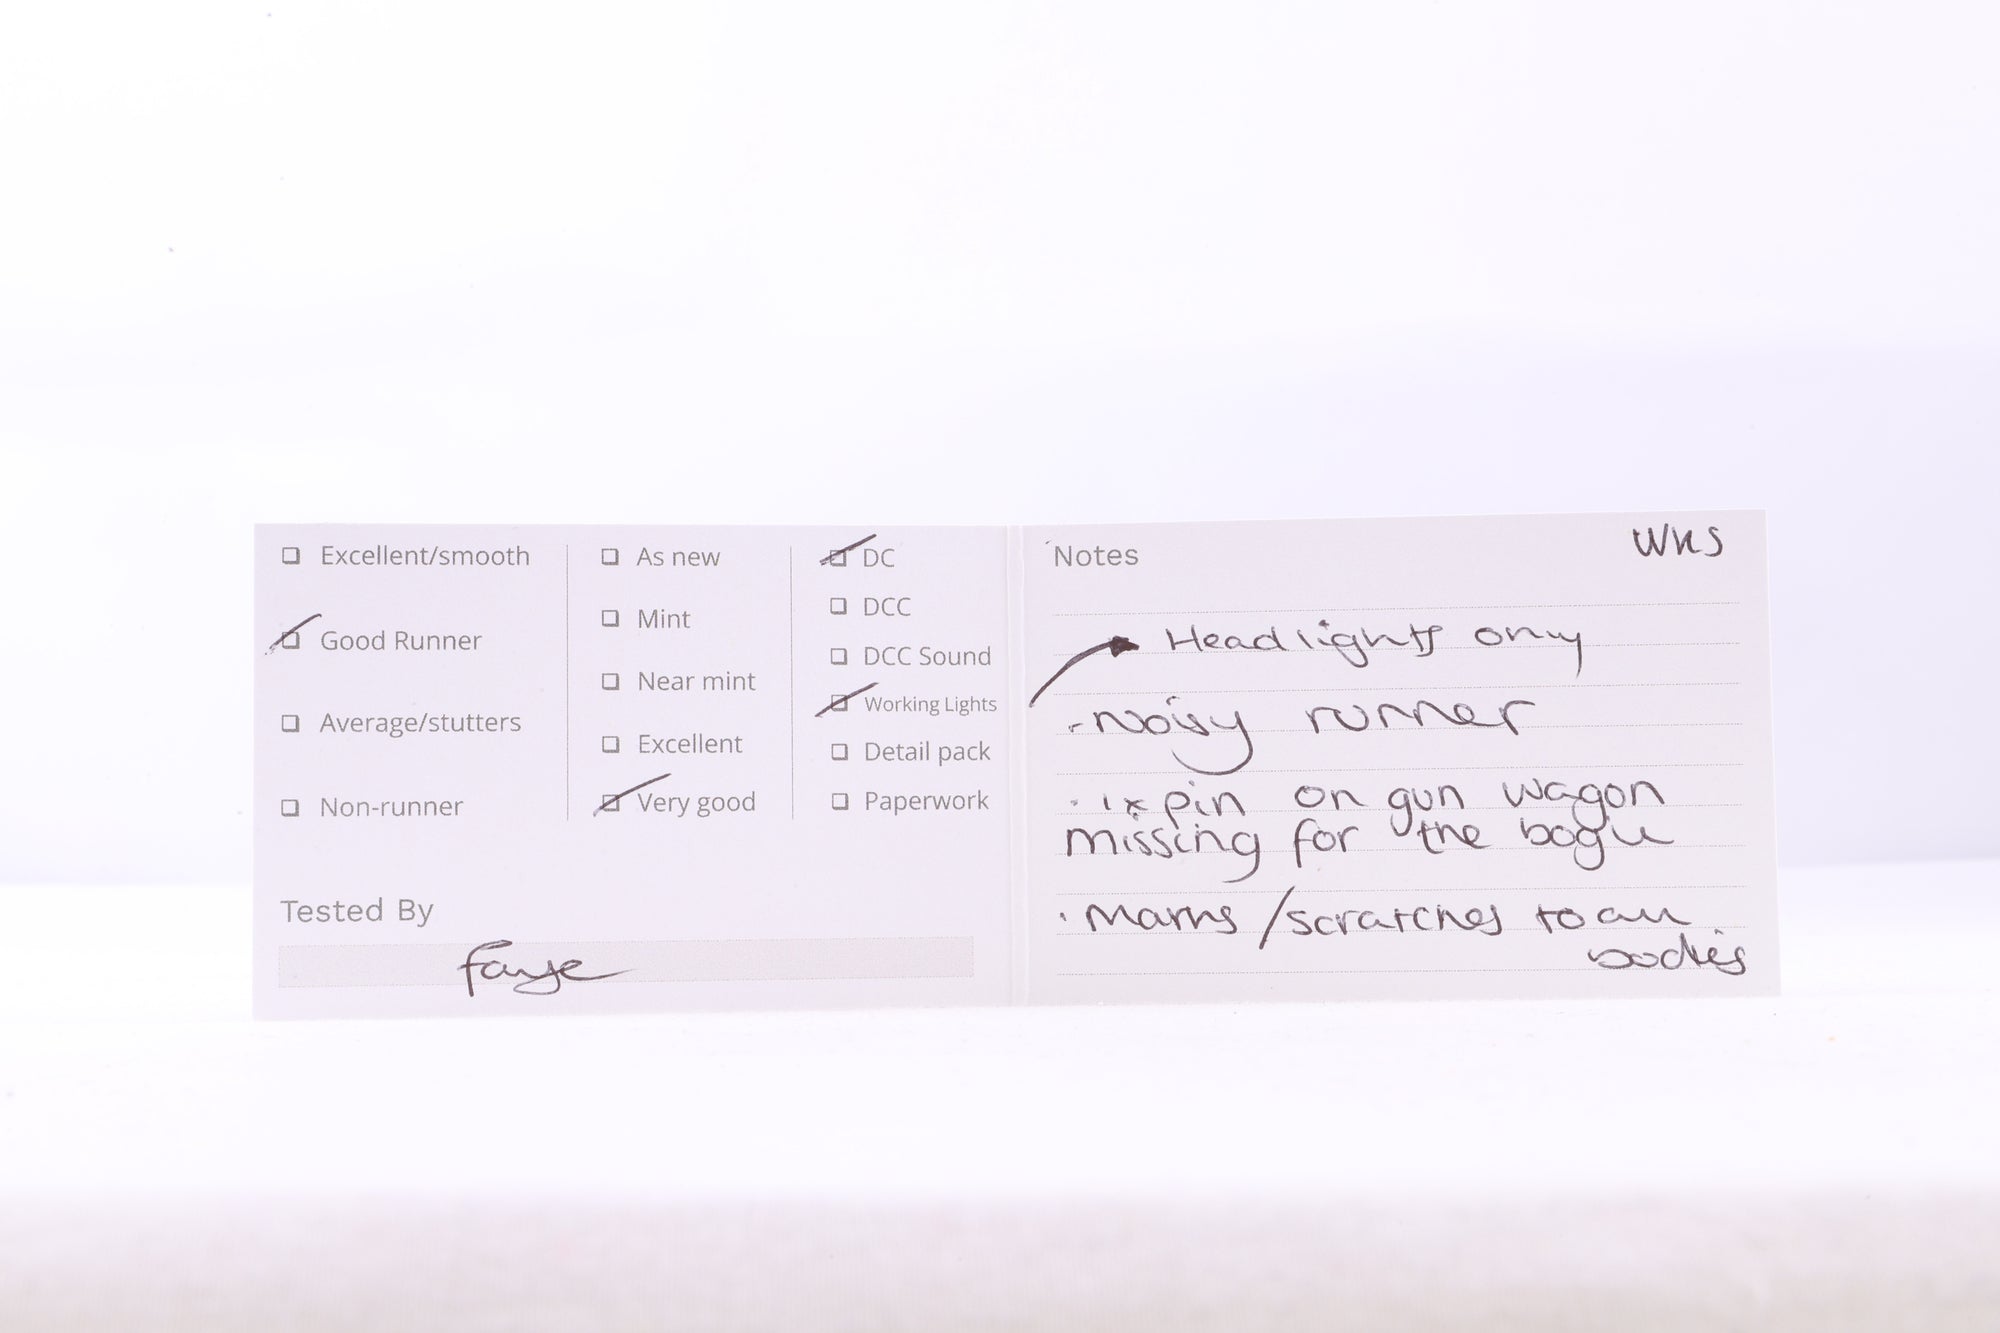 Excellent/smooth
Good Runner
Average/stutters
Non-runner
As new
Mint
Near mint
Excellent
Very good
DC
DCC
DCC Sound
Working Lights
Detail pack
Paperwork
Tested By
Faye
Notes
WKS
Headlights only
-Noisy runner
· 1x pin on gun wagon
missing for the bogie
· Marks/scratches to all
bodies